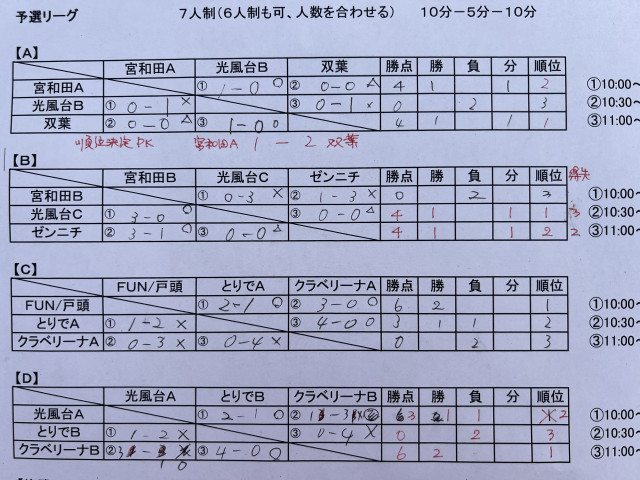 予選リーグ 7人制(6人制も可、人数を合わせる) 10分-5分-10分
【A】
宮和田A 光風台B 双葉 勝点 勝 負 分 順位
宮和田A ① 1-0 ○ ② 0-0 △ 4 1 1 2 ①10:00~
光風台B ① 0-1 × ③ 0-1 × 0 2 3 ②10:30~
双葉 ② 0-0 △ ③ 1-0 ○ 4 1 1 1 ③11:00~
順位決定PK 宮和田A 1-2 双葉
【B】 得失
宮和田B 光風台C ゼンニチ 勝点 勝 負 分 順位
宮和田B ① 0-3 × ② 1-3 × 0 2 3 ①10:00~
光風台C ① 3-0 ○ ③ 0-0 △ 4 1 1 1 3 ②10:30~
ゼンニチ ② 3-1 ○ ③ 0-0 △ 4 1 1 2 2 ③11:00~
【C】
FUN/戸頭 とりでA クラベリーナA 勝点 勝 負 分 順位
FUN/戸頭 ① 2-1 ○ ② 3-0 ○ 6 2 1 ①10:00~
とりでA ① 1-2 × ③ 4-0 ○ 3 1 1 2 ②10:30~
クラベリーナA ② 0-3 × ③ 0-4 × 0 2 3 ③11:00~
【D】
光風台A とりでB クラベリーナB 勝点 勝 負 分 順位
光風台A ① 2-1 ○ ② 3 1 1 2 ①10:00~
とりでB ① 1-2 × ③ 0-4 × 0 2 3 ②10:30~
クラベリーナB ② 3 ③ 4-0 ○ 6 2 1 ③11:00~
1 0